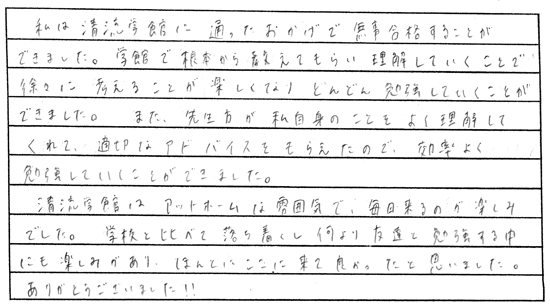 私は清流学館に通ったおかげで無事合格することが
できました。学館で根本から教えてもらい理解していくことで
徐々に考えることが楽しくなりどんどん勉強していくことが
できました。また、先生方が私自身のこともよく理解して
くれて、適切なアドバイスをもらえたので、効率よく
勉強していくことができました。
清流学館はアットホームな雰囲気で、毎日来るのが楽しみ
でした。学校と比べて落ち着くし何より友達と勉強する中
にも楽しみがあり、ほんとにここに来て良かったと思いました。
ありがとうございました!!